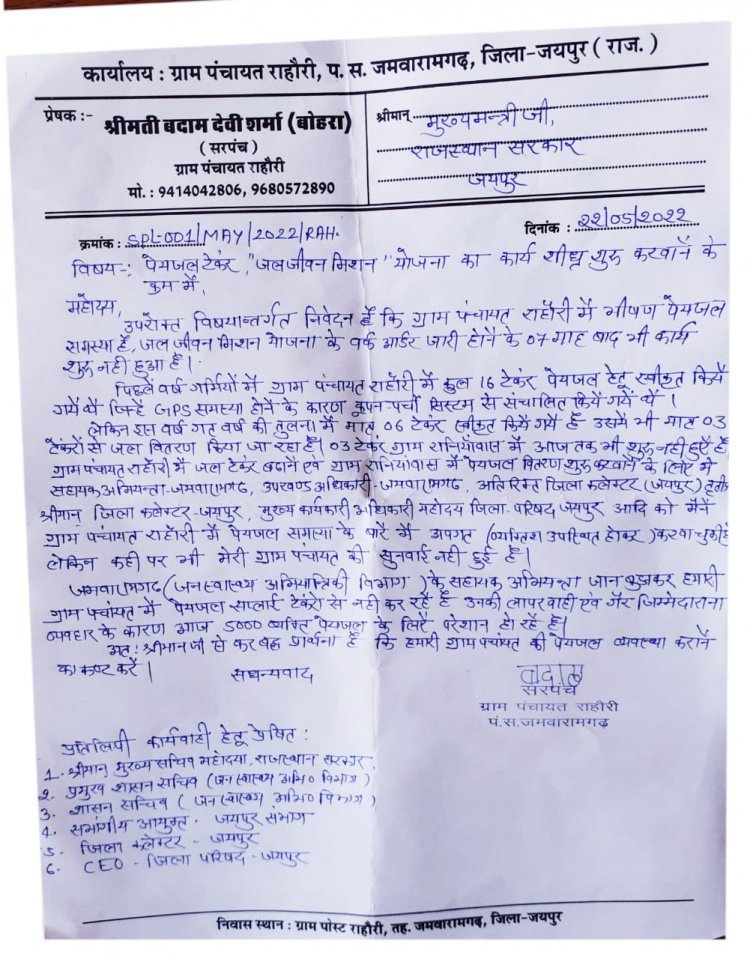 कार्यालय : ग्राम पंचायत राहौरी, प. स. जमवारामगढ़, जिला-जयपुर ( राज. )
प्रेषक :-
श्रीमती बदाम देवी शर्मा (बोहरा)
( सरपंच )
ग्राम पंचायत राहौरी
मो. : 9414042806, 9680572890
श्रीमान् मुख्यमन्त्री जी,
राजस्थान सरकार
जयपुर
क्रमांक : SPL-001/MAY/2022/RAH.
दिनांक : 22/05/2022
विषय-: पेयजल टेकंर, "जल जीवन मिशन" योजना का कार्य शीघ्र शुरु करवाने के
क्रम में,
महोदय,
उपरोक्त विषयान्तर्गत निवेदन हैं कि ग्राम पंचायत राहौरी में भीषण पेयजल
समस्या हैं, जल जीवन मिशन योजना के वर्क आर्डर जारी होने के 07 माह बाद भी कार्य
शुरु नही हुआ हैं।
पिछले वर्ष गर्मियों में ग्राम पंचायत राहौरी में कुल 16 टेकंर पेयजल हेतु स्वीकृत किये
गयें थें जिन्हे GPS समस्या होने के कारण कूपन-पर्ची सिस्टम से संचालित किये गयें थें।
लेकिन इस वर्ष गत वर्ष की तुलना में मात्र 06 टेकंर स्वीकृत किये गयें हैं उसमें भी मात्र 03
टेंकरों से जल वितरण किया जा रहा हैं। 03 टेकंर ग्राम रानियांवास में आज तक भी शुरु नही हुऐं हैं
ग्राम पंचायत राहौरी में जल टेकंर बढाने एवं ग्राम रानियांवास में पेयजल वितरण शुरु करवाने के लिऐ में
सहायक अभियन्ता-जमवारामगढ, उपखण्ड अधिकारी-जमवारामगढ, अतिरिक्त जिला कलेक्टर (जयपुर) तृतीय
श्रीमान् जिला कलेक्टर-जयपुर, मुख्य कार्यकारी अधिकारी महोदय जिला-परिषद जयपुर आदि को मैंने
ग्राम पंचायत राहौरी में पेयजल समस्या के बारे में अवगत (व्यक्तिश उपस्थित होकर) करवा चुकी हूँ
लेकिन कही पर भी मेरी ग्राम पंचायत की सुनवाई नही हुई हैं।
जमवारामगढ (जनस्वास्थ्य अभियान्त्रिकी विभाग) के सहायक अभियन्ता जान बुझकर हमारी
ग्राम पंचायत में पेयजल सप्लाई टेकंरो से नही कर रहें हैं उनकी लापरवाही एवं गैर जिम्मेदाराना
व्यवहार के कारण आज 5000 व्यक्ति पेयजल के लिऐं परेशान हो रहें हैं।
अत: श्रीमान जी से करबद्ध प्रार्थना हैं कि हमारी ग्राम पंचायत की पेयजल व्यवस्था कराने
का कष्ट करें।
सधन्यवाद
बदाम
सरपंच
ग्राम पंचायत राहौरी
पं.स.जमवारामगढ़
प्रतिलिपी कार्यवाही हेतु प्रेषित :
1. श्रीमान् मुख्य सचिव महोदया, राजस्थान सरकार.
2. प्रमुख शासन सचिव (जन स्वास्थ्य अभि० विभाग)
3. शासन सच्चिव (जन स्वास्थ्य अभि० विभाग)
4. संभागीय आयुक्त - जयपुर संभाग
5. जिला कलेक्टर - जयपुर
6. CEO - जिला परिषद - जयपुर
निवास स्थान : ग्राम पोस्ट राहौरी, तह. जमवारामगढ़, जिला-जयपुर